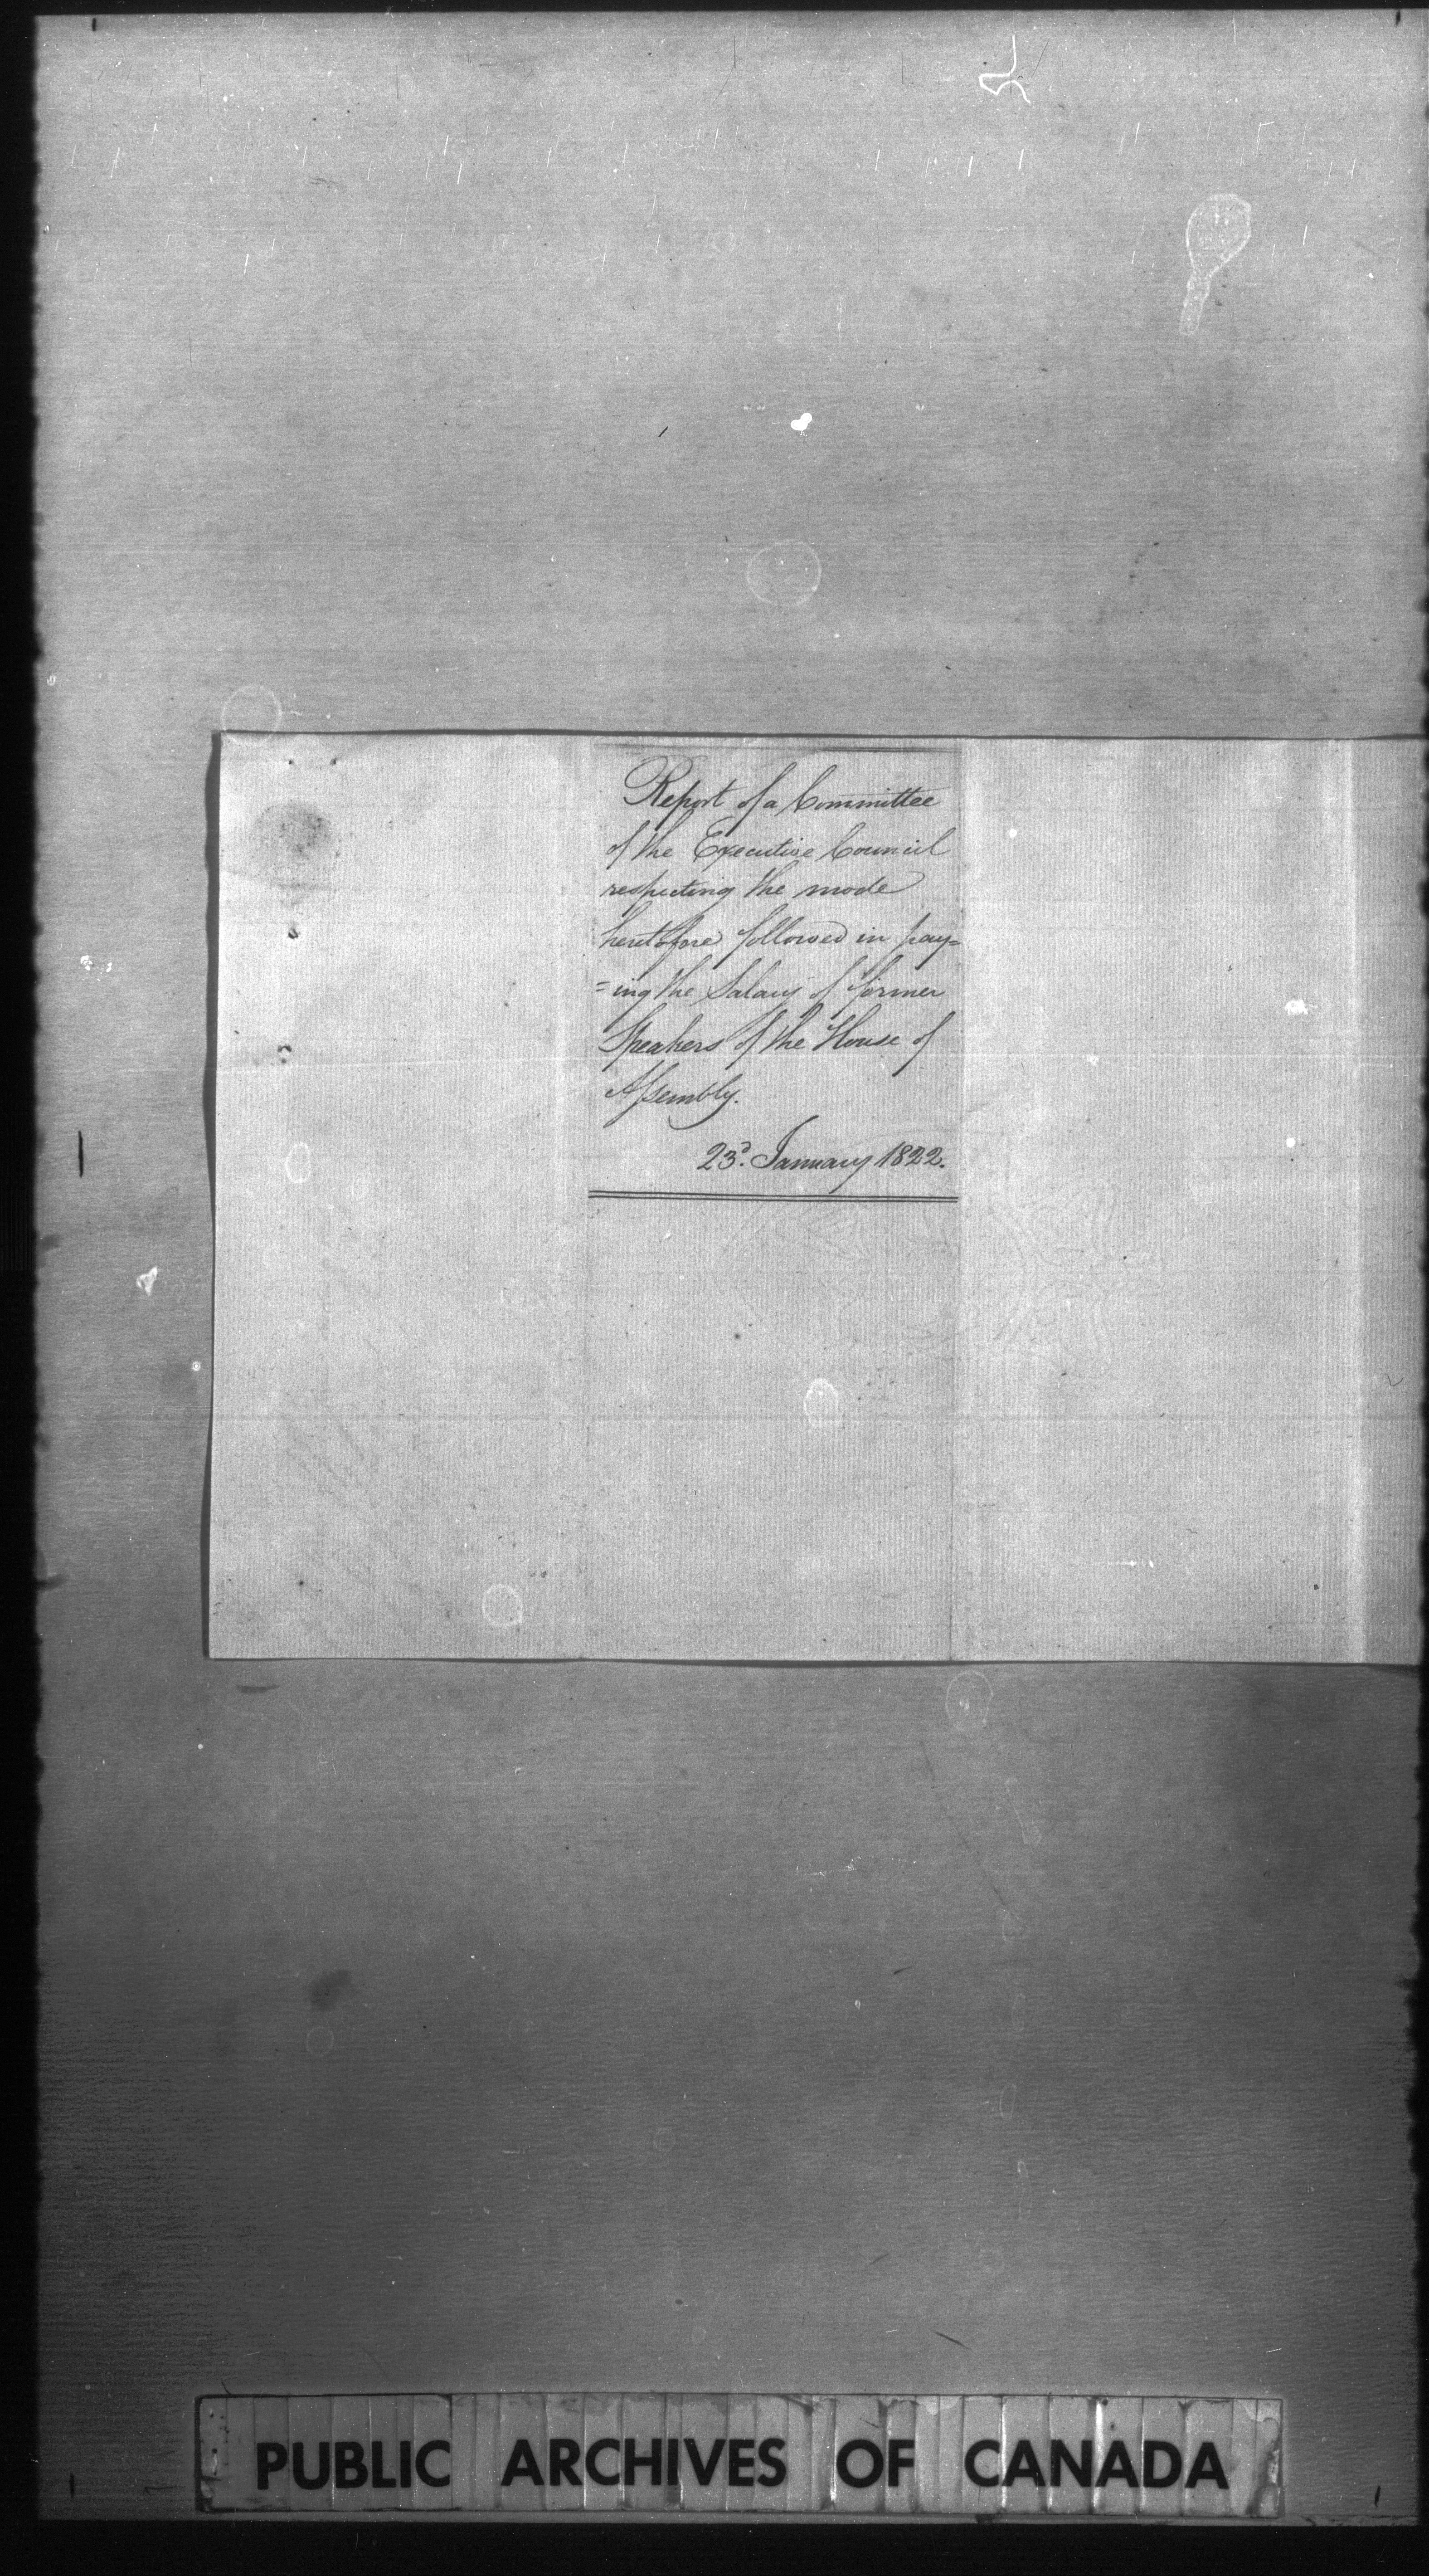 Report of a Committee
of the Executive Council
respecting the mode
heretofore followed in pay=
=ing the Salary of former
Speakers of the House of
Assembly.
23d. January 1822.
PUBLIC ARCHIVES OF CANADA